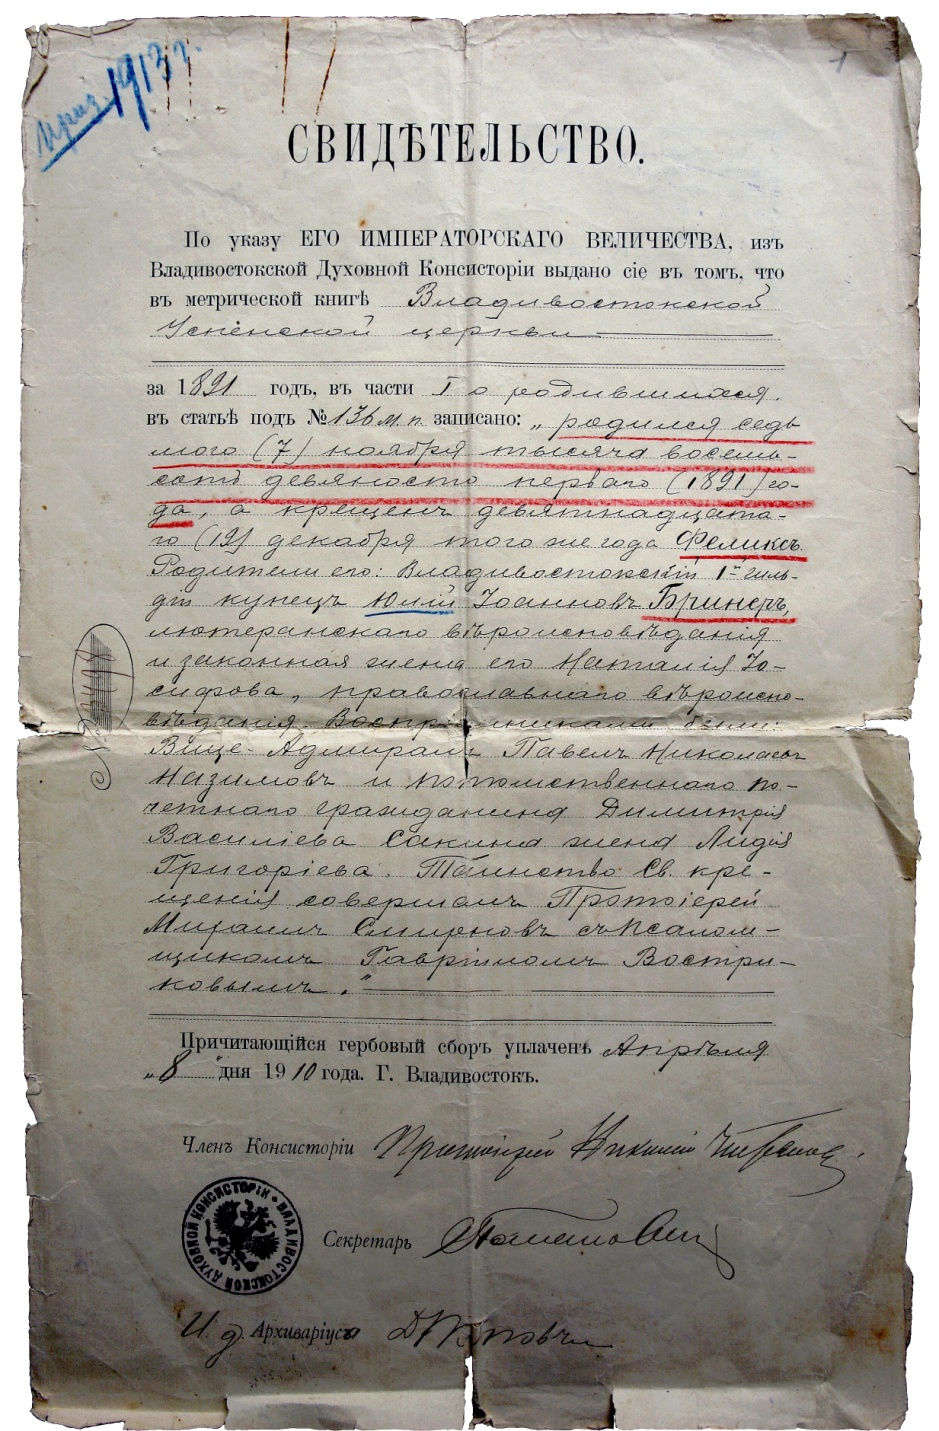 приз. 1913 г.
1
СВИДѢТЕЛЬСТВО.
По указу ЕГО ИМПЕРАТОРСКАГО ВЕЛИЧЕСТВА, изъ
Владивостокской Духовной Консисторіи выдано сіе въ томъ, что
въ метрической книгѣ Владивостокской
Успенской церкви
за 1891 годъ, въ части I о родившихся,
въ статьѣ подъ № 136 м. п. записано: „родился седь
мого (7) ноября тысяча восемь-
сотъ девяносто перваго (1891) го-
да, а крещенъ девятнадцата-
го (19) декабря того же года Феликсъ.
Родители его: Владивостокскій 1й гиль-
діи купецъ Юлій Іоанновъ Бринеръ,
лютеранскаго вѣроисповѣданія
и законная жена его Наталія Іо-
сифова, православнаго вѣроиспо-
вѣданія. Воспріемниками были:
Вице-Адмиралъ Павелъ Николаевъ
Назимовъ и потомственнаго по-
четнаго гражданина Димитрія
Василіева Сакина жена Лидія
Григоріева. Таинство Св. кре-
щенія совершалъ Протоіерей
Михаилъ Смирновъ съ Псалом-
щикомъ Гавріиломъ Востри-
ковымъ."
Причитающійся гербовый сборъ уплаченъ Апрѣля
„8" дня 1910 года. Г. Владивостокъ.
Членъ Консисторіи Протоіерей
ВЛАДИВОСТОКСКОЙ ДУХОВНОЙ КОНСИСТОРІИ
Секретарь
И. д. Архиваріуса